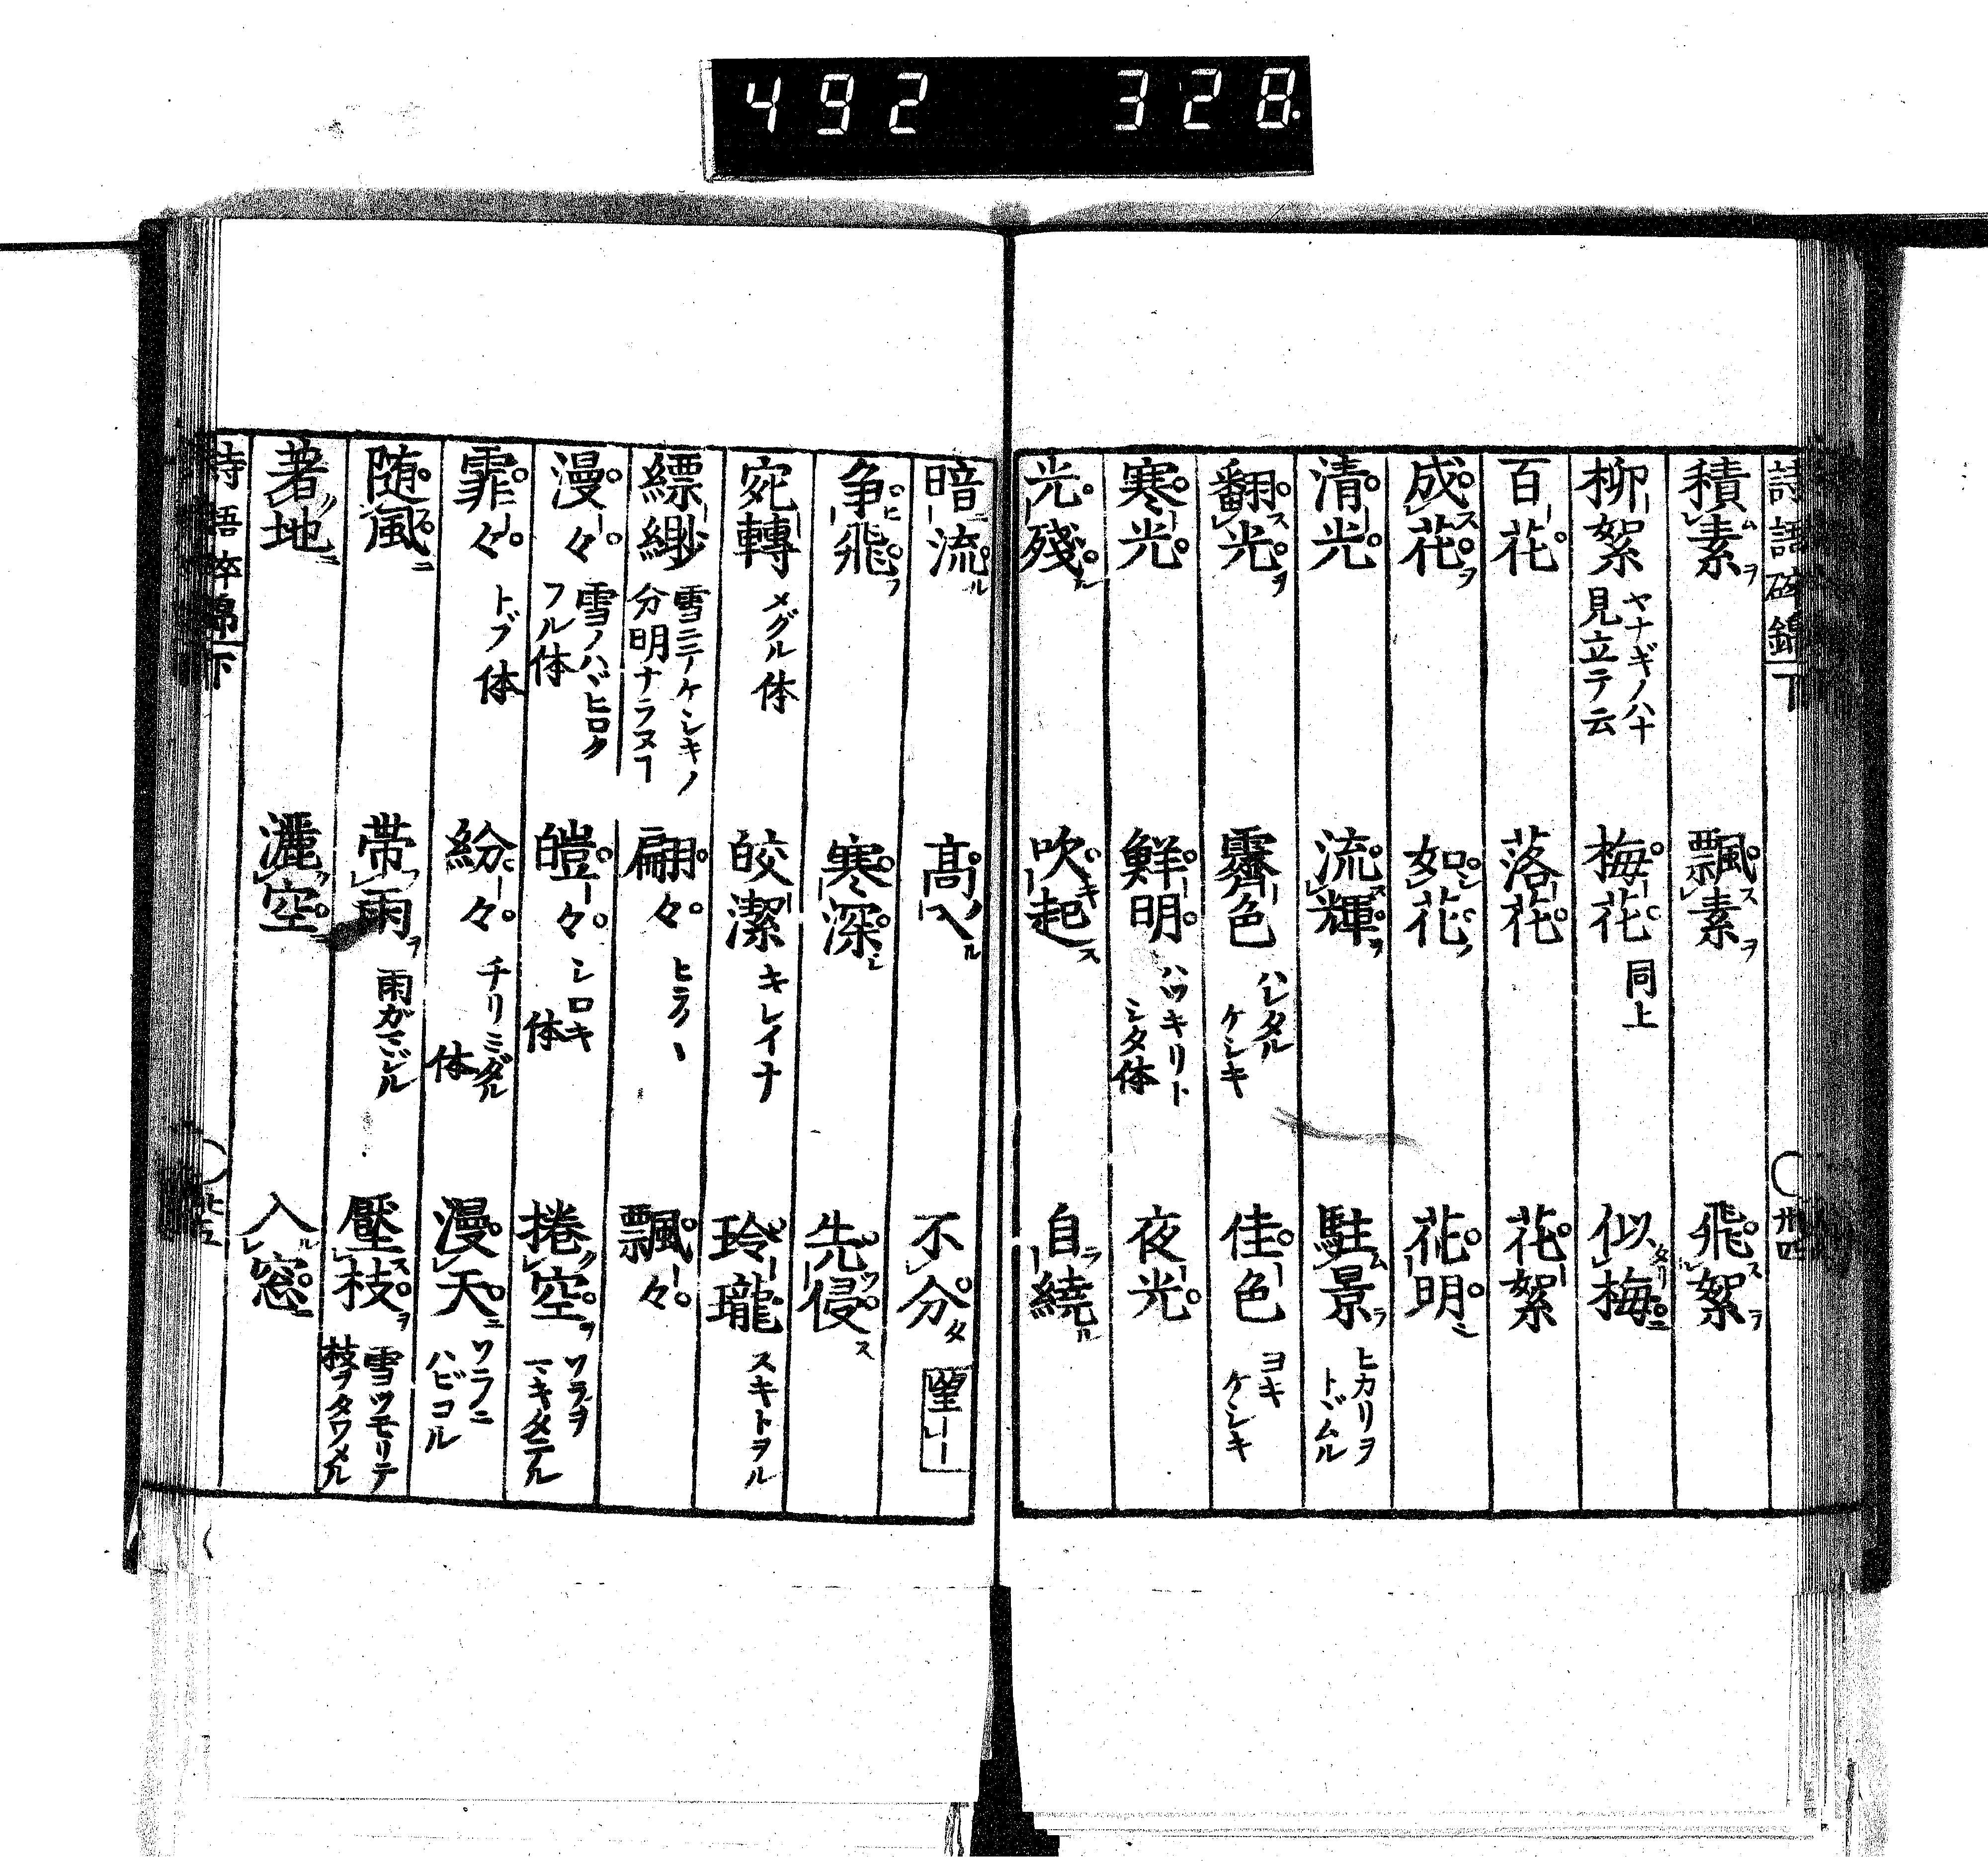 492 328
詩語碎錦 下
積素 飄素 飛絮
柳絮 ヤナギノハナ見立テ云 梅花 同上 似梅
百花 落花 花絮
成花 如花 花明
清光 流輝 駐景 ヒカリヲトヾムル
翻光 霽色 ハレタルケシキ 佳色 ヨキケシキ
寒光 鮮明 ハッキリトシタ体 夜光
光殘 吹起 自繞
暗流 高入 不分 望
争飛 寒深 先侵
宛轉 メグル体 皎潔 キレイナ 玲瓏 スキトヲル
縹緲 分明ナラヌヿ 翩々 飄々
漫々 雪ノハヾヒロクフル体 皚々 シロキ体 捲空 ソラヲマキタテル
霏々 トブ体 紛々 チリミダル体 漫天 ソラニハビコル
随風 帯雨 雨ガマジル 壓枝 雪ツモリテ枝ヲタワメル
著地 灑空 入窓
詩語碎錦 下